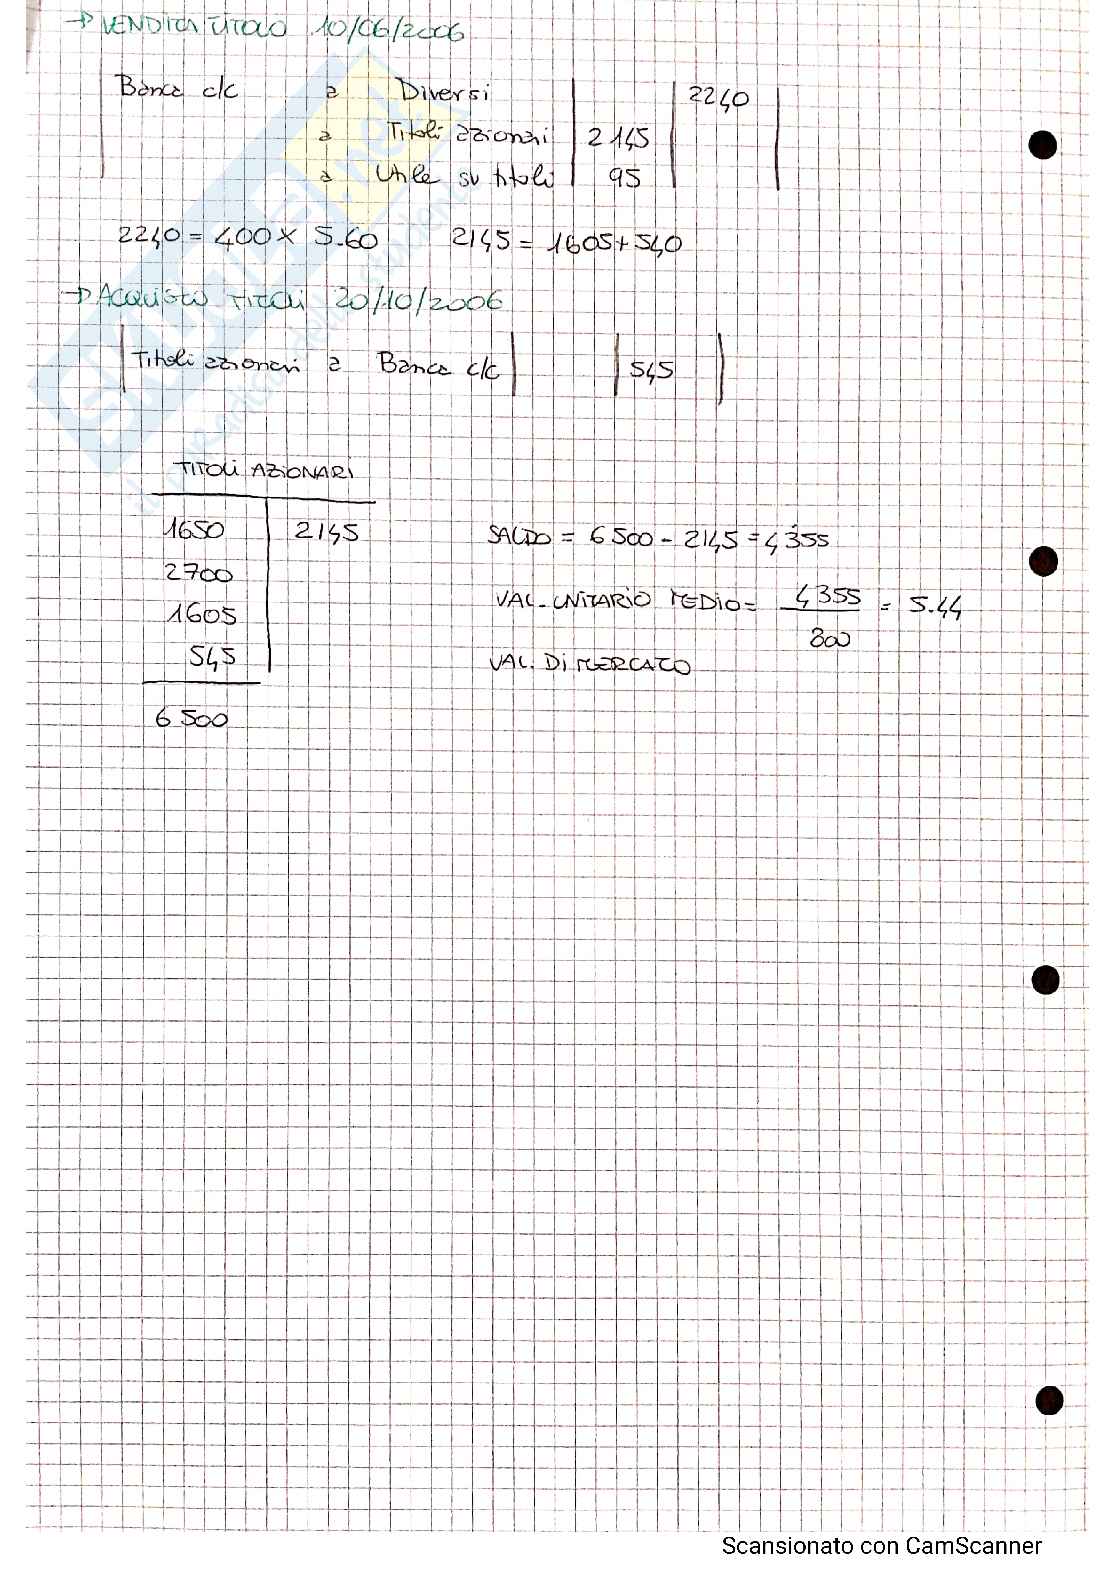 → VENDITA TITOLO 10/06/2006
Banca c/c a Diversi 2240
a Titoli azionari 2145
a Utile su titoli 95
2240 = 400 x 5.60 2145 = 1605 + 540
→ ACQUISTO TITOLI 20/10/2006
Titoli azionari a Banca c/c 545
TITOLI AZIONARI
1650 2145 SALDO = 6500 - 2145 = 4355
2700
VAL. UNITARIO MEDIO = 4355 = 5.44
1605
800
545 VAL. DI MERCATO
6500
Scansionato con CamScanner